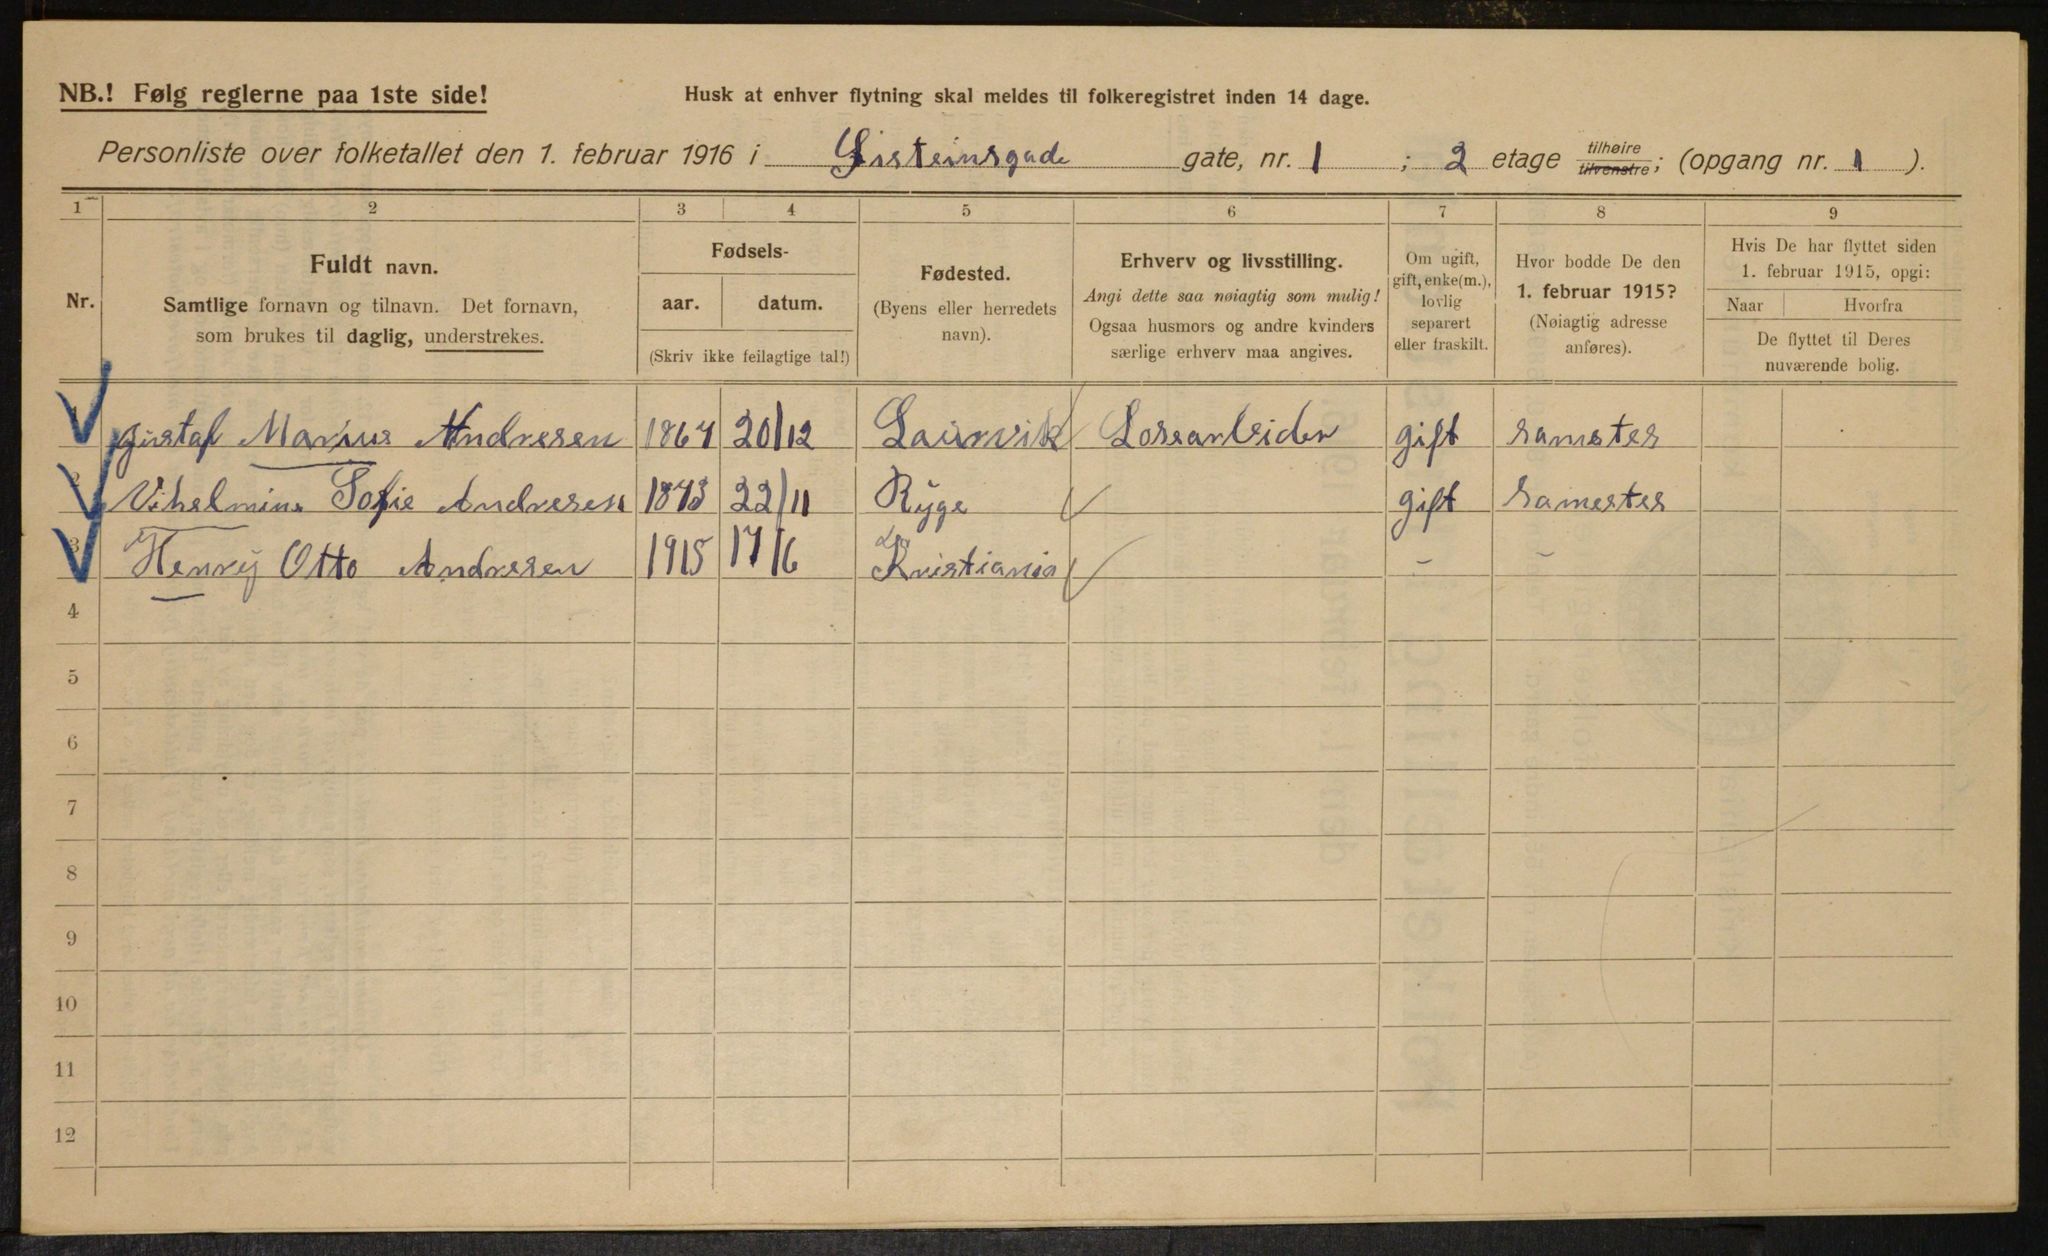 NB.! Følg reglerne paa 1ste side!
Husk at enhver flytning skal meldes til folkeregistret inden 14 dage.
Personliste over folketallet den 1. februar 1916 i Sisteinsgade gate, nr. 1 ; 2 etage tilhøire tilvenstre; (opgang nr. 1 ).
1 2 3 4 5 6 7 8 9
Nr.
Fuldt navn.
Samtlige fornavn og tilnavn. Det fornavn,
som brukes til daglig, understrekes.
Fødsels-
aar. datum.
(Skriv ikke feilagtige tal!)
Fødested.
(Byens eller herredets
navn).
Erhverv og livsstilling.
Angi dette saa nøiagtig som mulig!
Ogsaa husmors og andre kvinders
særlige erhverv maa angives.
Om ugift,
gift, enke(m.),
lovlig
separert
eller fraskilt.
Hvor bodde De den
1. februar 1915?
(Nøiagtig adresse
anføres).
Hvis De har flyttet siden
1. februar 1915, opgi:
Naar Hvorfra
De flyttet til Deres
nuværende bolig.
1 Gustaf Marius Andresen 1867 20/12 Laurvik Lossearbeider gift samestes
2 Vihelmine Sofie Andresen 1873 22/11 Rÿge gift samestes
3 Henrÿ Otto Andresen 1915 17/6 Kristiania - -
4
5
6
7
8
9
10
11
12